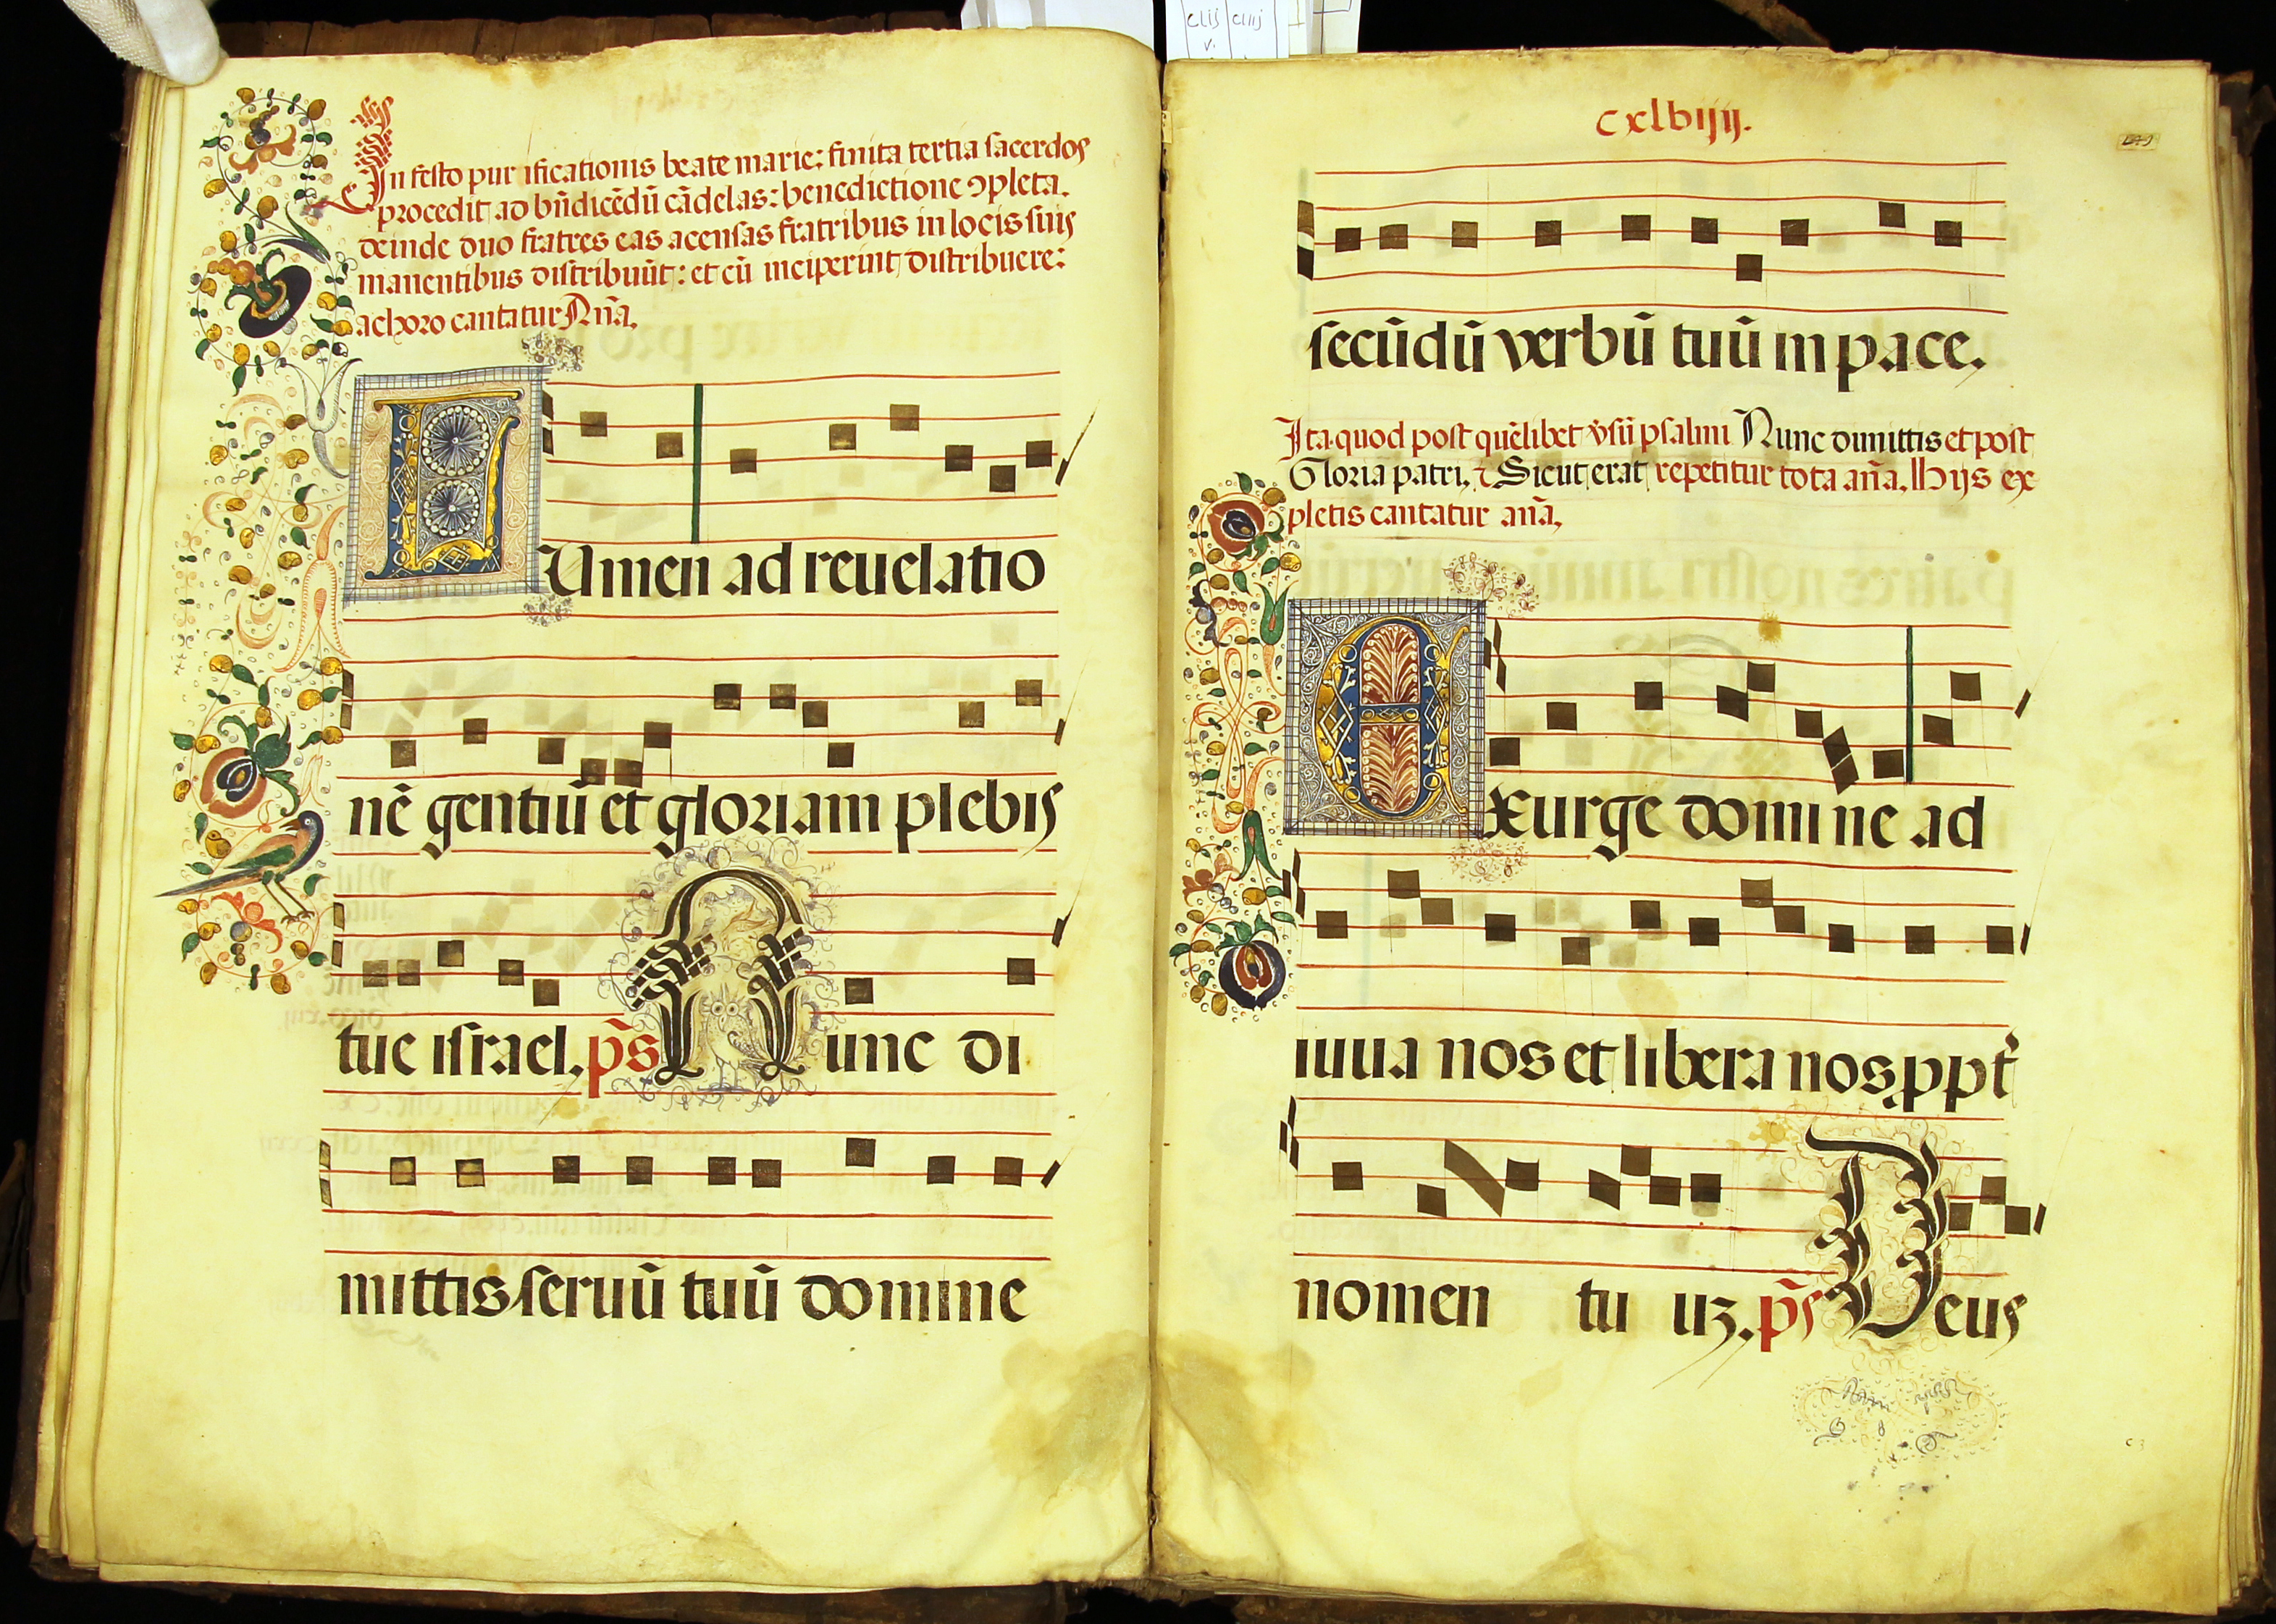 clij cliij
v.
In festo purificationis beate marie: finita tertia sacerdos
procedit ad bñdicẽdũ cãdelas: benedictione ↄpleta.
deinde duo fratres eas acensas fratribus in locis suis
manentibus distribuũt: et cũ inciperint distribuere:
a choro cantatur Añã.
LUmen ad reuelatio
nẽ gentiũ et gloriam plebis
tue israel. p̃s Nunc di
mittis seruũ tuũ domine
cxlbiiij.
secũdũ verbũ tuũ in pace.
Ita quod post quẽlibet v̉sũ psalmi Nunc dimittis et post
Gloria patri, ⁊ Sicut erat repetitur tota añã. Hijs ex
pletis cantatur añã,
Exurge domine ad
iuua nos et libera nos ꝓpt̉
nomen tuuꝫ. p̃s Deus